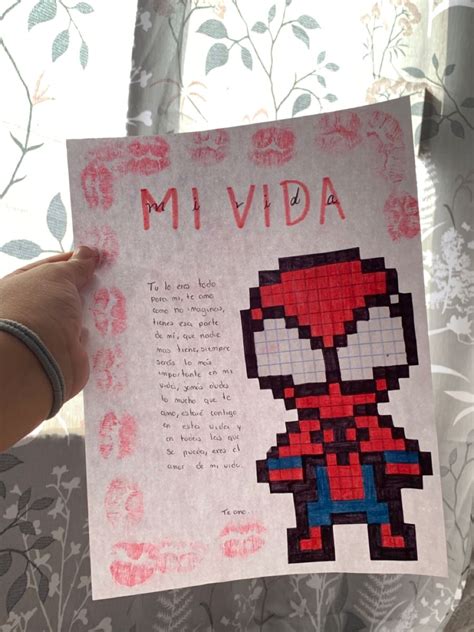 MI VIDA
mi vida
Tu lo eres todo
para mi, te amo
como no imaginas,
tienes esa parte
de mi, que nadie
mas tiene, siempre
serás lo más
importante en mi
vida, jamás olvides
lo mucho que te
amo, estaré contigo
en esta vida y
en todas las que
se pueda, eres el
amor de mi vida.
Te amo.